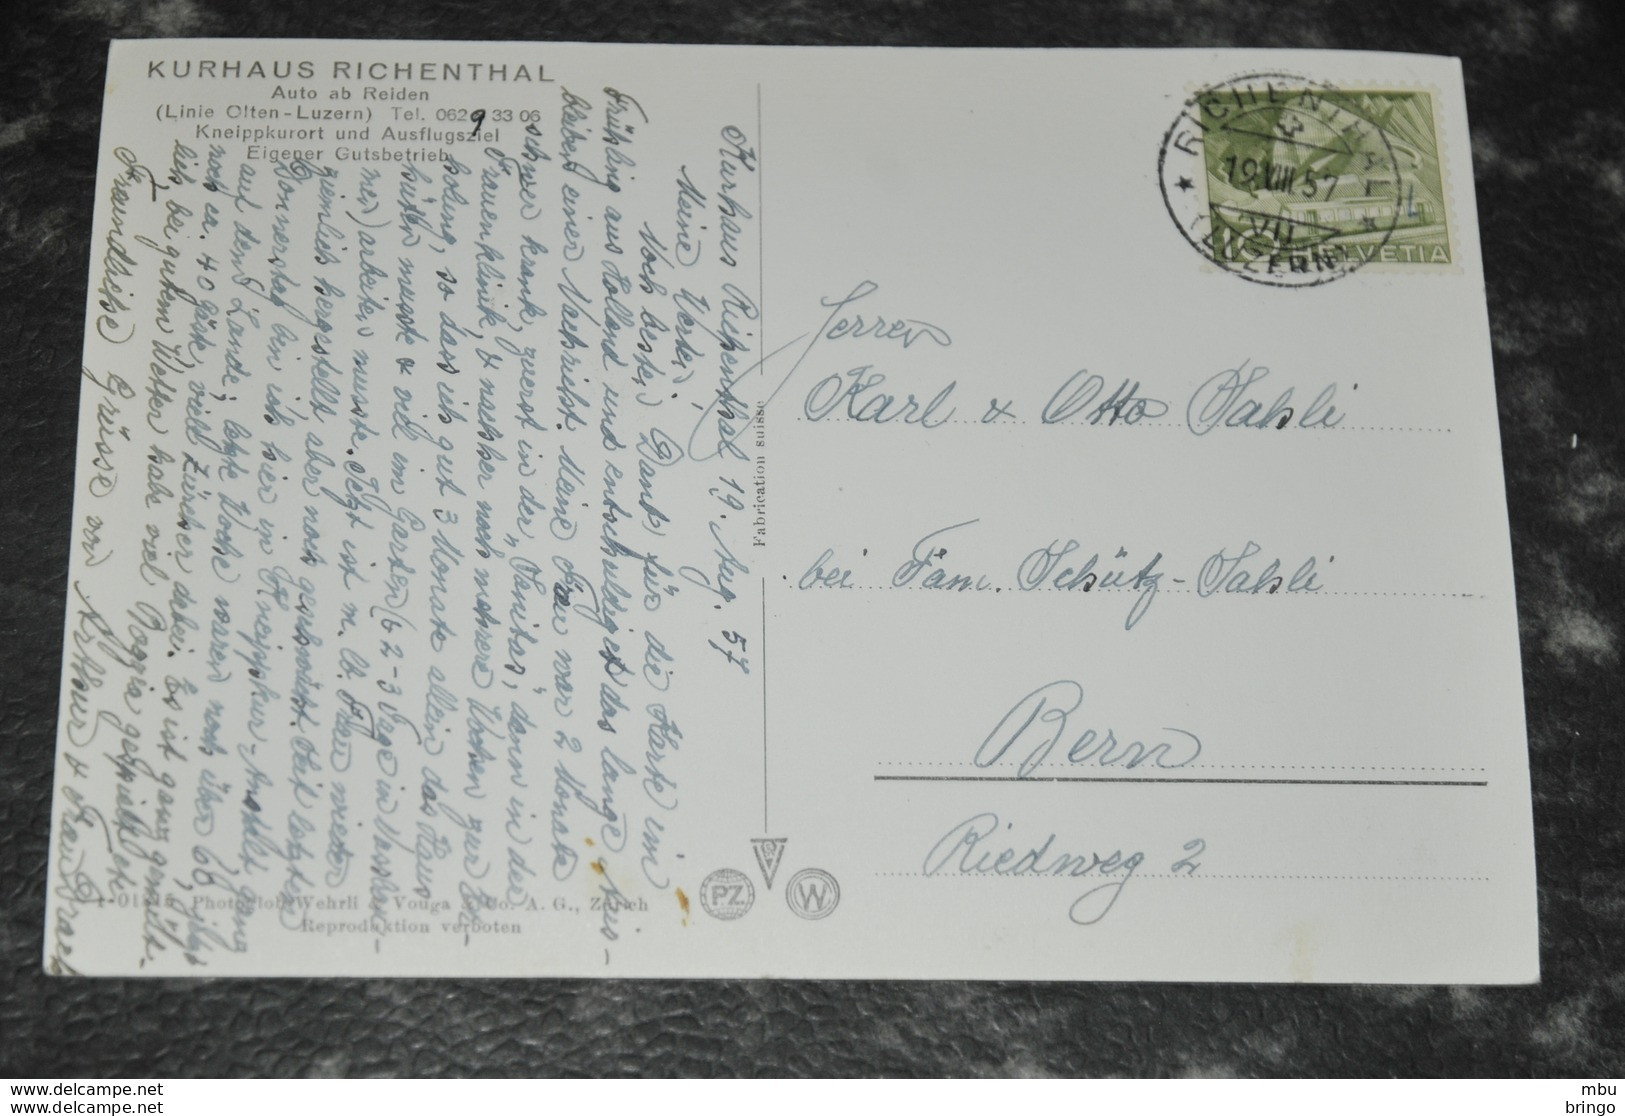 KURHAUS RICHENTHAL
Auto ab Reiden
(Linie Olten-Luzern) Tel. 062 9 33 06
Kneippkurort und Ausflugsziel
Eigener Gutsbetrieb
Kurhaus Richenthal 19. Aug. 57
Meine Werten!
Noch besten Dank für die Karte im
Frühling aus Holland und entschuldiget das lange Aus-
bleiben einer Nachricht. Meine Frau war 2 Monate
schwer krank, zuerst in der "Sanitas", dann in der
Frauenklinik, & nachher noch mehrere Wochen zur Er-
holung, so dass ich gut 3 Monate allein das Haus
hüten musste & viel im Garten (& 2-3 Tage in
arbeiten musste. Jetzt ist m. lb. Frau wieder
ziemlich hergestellt aber noch geschwächt. Seit letzten
Donnerstag bin ich hier in Kneippkur-Anstalt, ganz
auf dem Lande, letzte Woche waren noch über 60, jetzt
noch ca. 40 Gäste, viele Zürcher dabei. Es ist ganz gemüt-
lich bei gutem Wetter habe viel Boccia gespielt etc.
Freundliche Grüsse von Arthur & Frau
Fabrication suisse
Photoglob-Wehrli & Vouga & Co. A. G., Zürich
Reproduktion verboten
PZ
W
RICHENTHAL
19.VIII.57
VII
(LUZERN)
10 HELVETIA
Herren
Karl & Otto Sahli
bei Fam. Schütz-Sahli
Bern
Riedweg 2
mbu
mbu
bringo
bringo